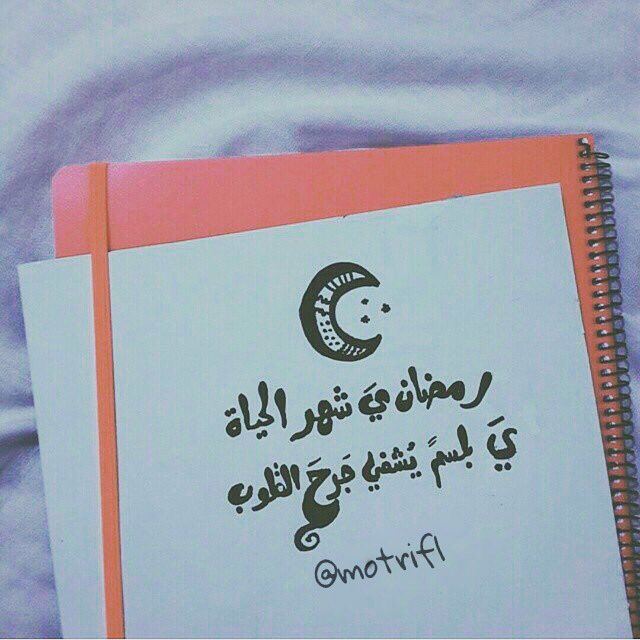 رمضان يَ شهر الحياة
يَ بلسمً يُشفي جَرحَ القلوب
@motrifl